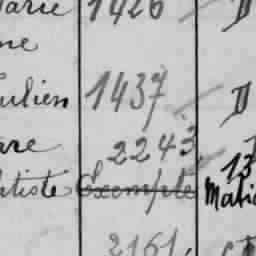 arie 1426 D
ne
ulien 1437 D
are 2243
13
tiste Exempté Matic
2161.